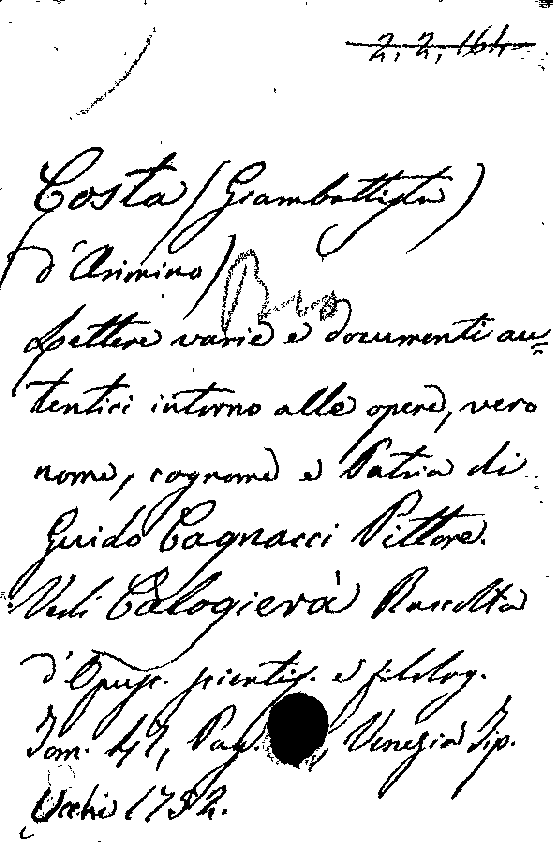 2, 2, 164
Costa (Giambattista)
d'Arimino)
Lettere varie e documenti au=
tentici intorno alle opere, vero
nome, cognome e Patria di
Guido Cagnacci Pittore.
Vedi Calogierà Raccolta
d'Opusc. scientif. e filolog.
Tom. 47, Pag. Venezia Tip.
Occhi 1752.